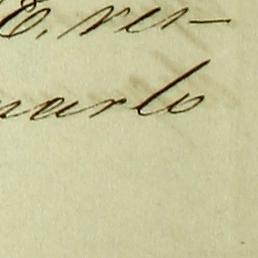 E. ver-
narlo